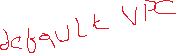 default VPC